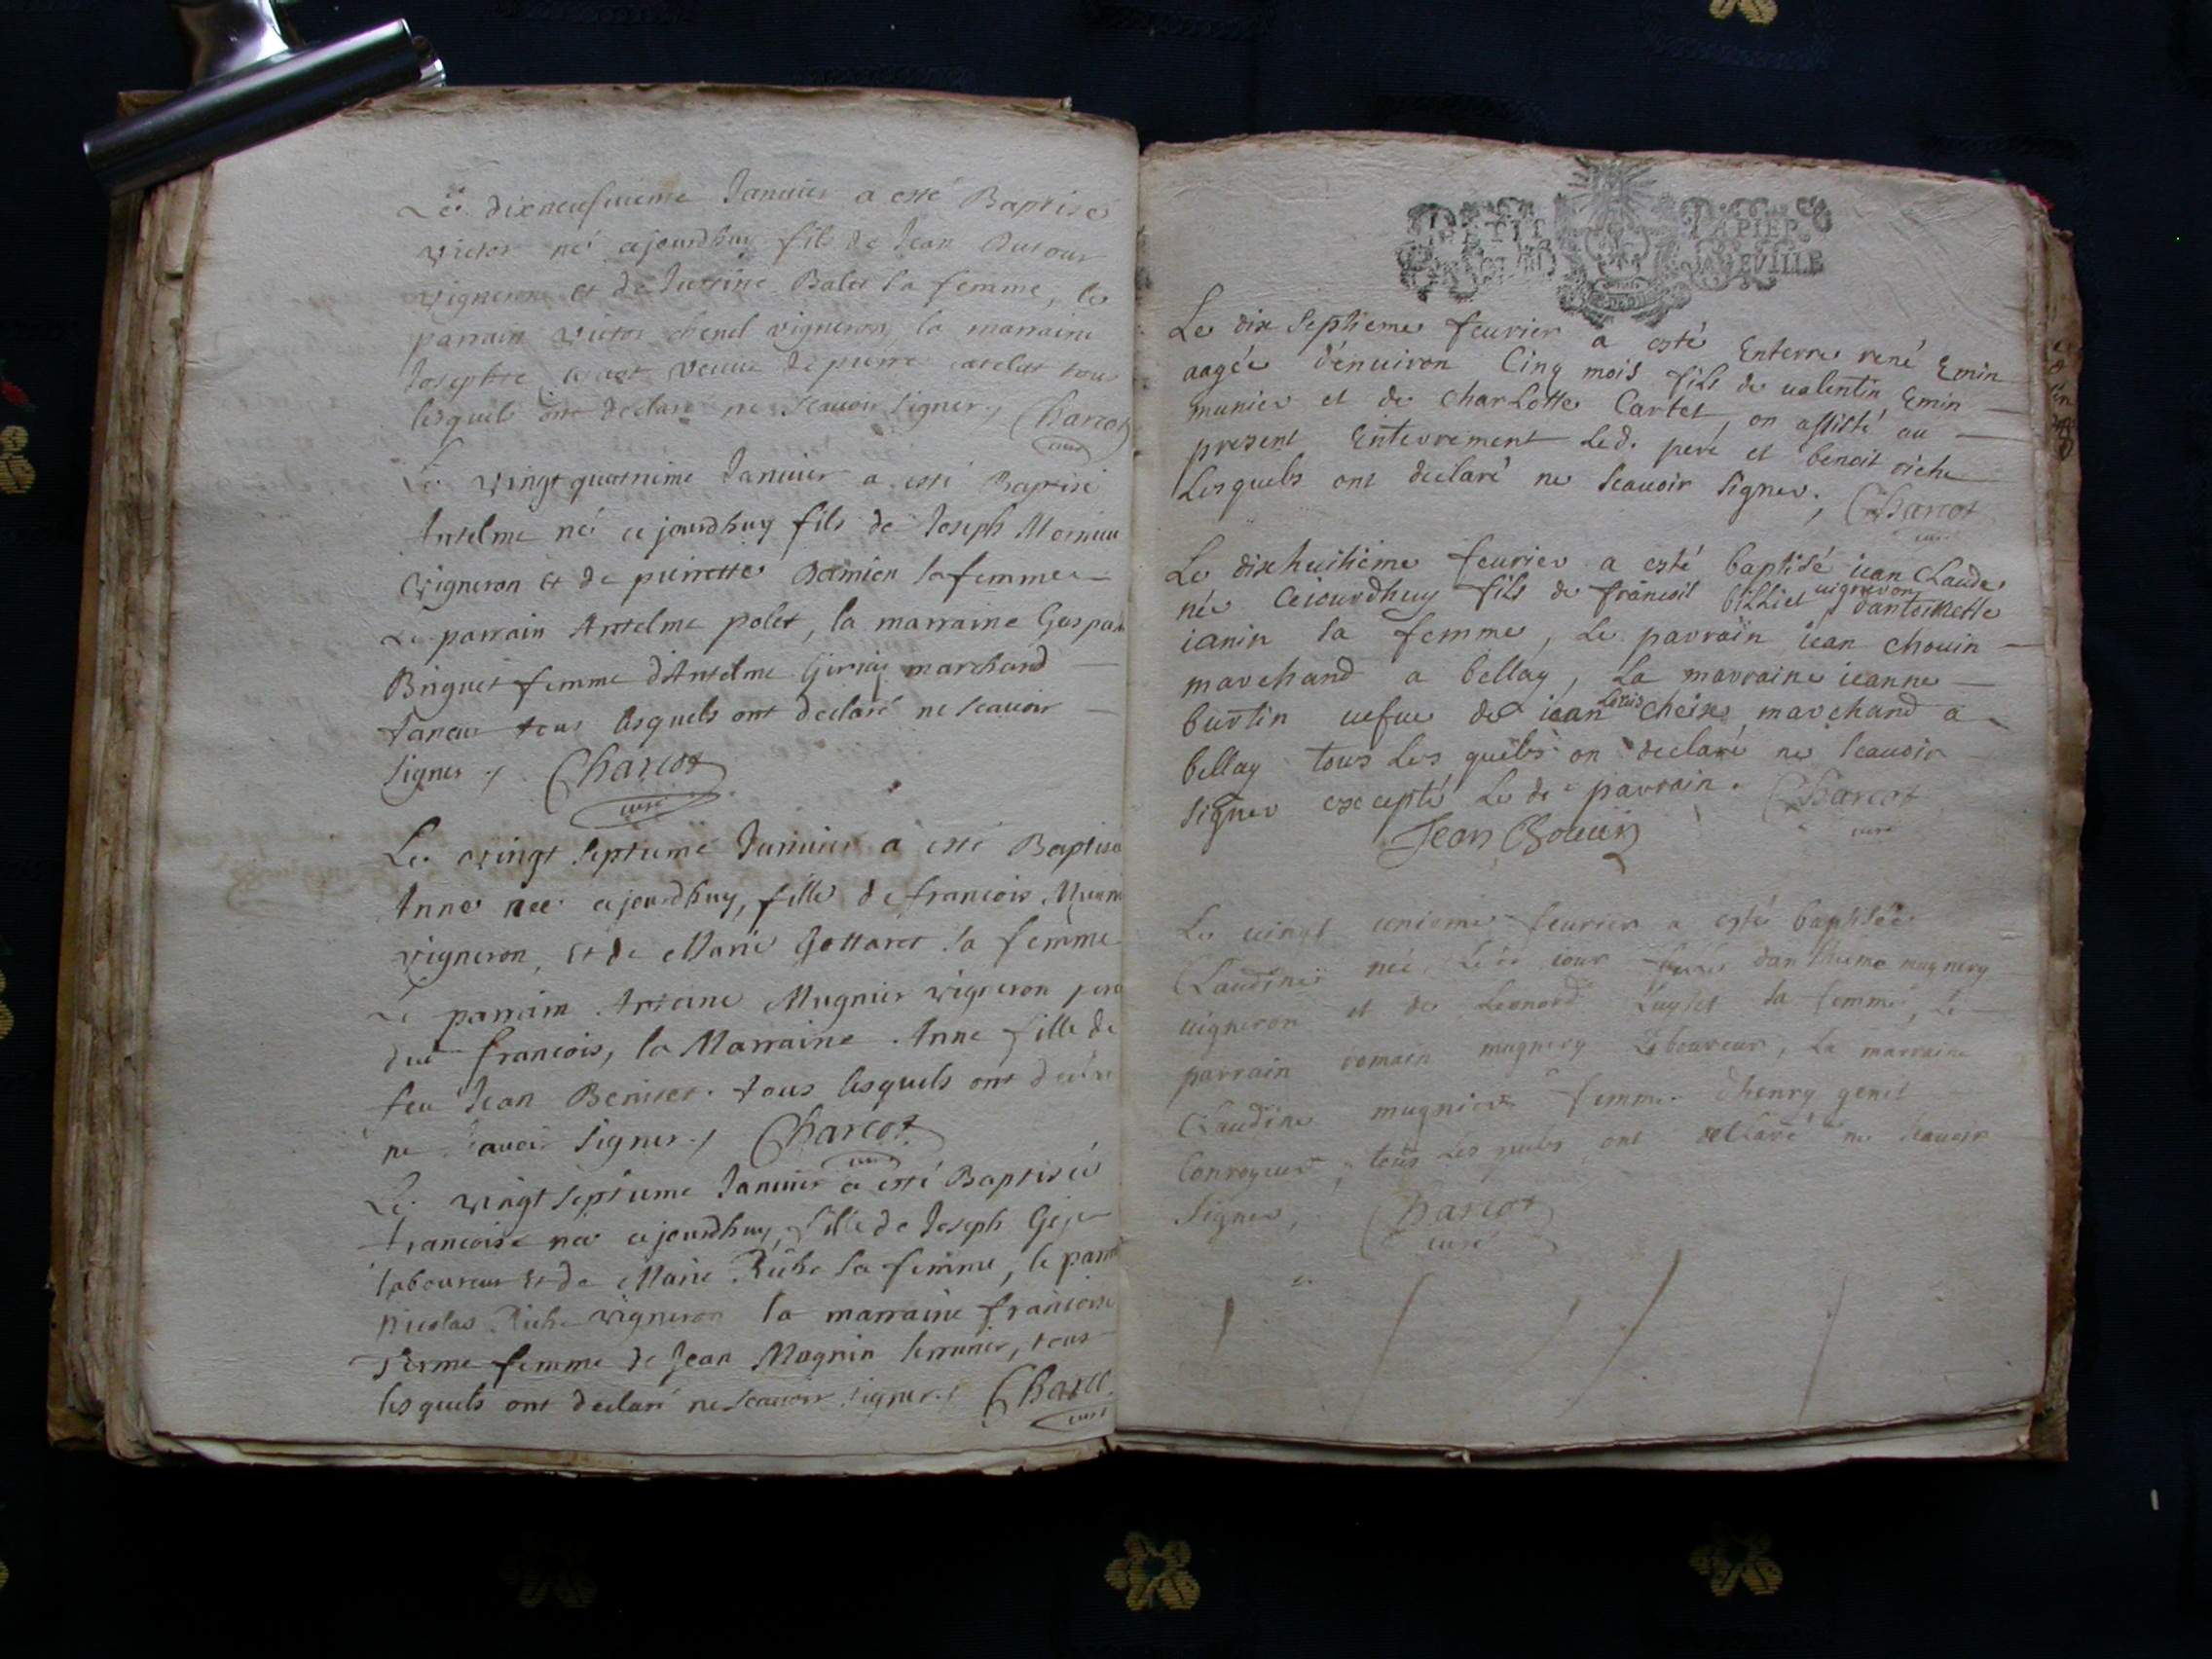 Le dixneufvieme Janvier a esté Baptisé
Victor né cejourdhuy fils de Jean Dutour
vigneron et de Balet sa femme, le
parrain Victor vigneron, la marraine
Josephte veuve de pierre tous
lesquels ont declaré ne scavoir signer ./ Charcot
curé
Le vingt quatrieme Janvier a esté Baptisé
Antelme né cejourdhuy fils de Joseph
vigneron et de pierrette Damien sa femme
Le parrain Antelme polet, la marraine
Briguet femme d'Antelme marchand
taneur tous lesquels ont declaré ne scavoir
signer ./ Charcot
curé
Le vingt septieme Janvier a esté Baptisé
Anne née cejourdhuy, fille de francois
vigneron, et de Marie Gottaret sa femme
Le parrain Antoine Mugnier vigneron
dud francois, la Marraine Anne fille de
feu Jean tous lesquels ont
ne signer ./ Charcot
curé
Le vingt septieme Janvier a esté Baptisée
francoise née cejourdhuy, fille de Joseph
laboureur et de Marie Riche sa femme, le
nicolas Riche vigneron la marraine francoise
femme de Jean Magnin tous
lesquels ont declaré ne scavoir signer ./
curé
PAPIER
Le dix septieme feurier a esté Enterre rené Emin
aagée d'enuiron Cinq mois fils de ualentin Emin
munier et de charLotte Cartet, on assisté au
present Enterrement Led. pere et benoit riche
Lesquels ont declaré ne scauoir signer. / Charcot
curé
Le dixhuitieme feurier a esté baptisé iean CLaude
née Ceiourdhuy fils de francois billiet uigneron dantoinette
ianin sa femme, Le parrain iean chouin
marchand a bellay, La marraine ieanne
burtin uefue de iean Louis cheine marchand a
bellay tous Les quels on declaré ne scauoir
signer excepté Le de parrain. Charcot
curé
Jean Chouin
Le uingt unieme feurier a esté baptisée
CLaudine née Le de iour dantheme mugnery
uigneron et de Leonard sa femme, Le
parrain romain mugnery Laboureur, La marraine
CLaudine mugnier femme dhenry genet
Conroyeur, tous Les quels ont declaré ne scauoir
signer, Charcot
curé